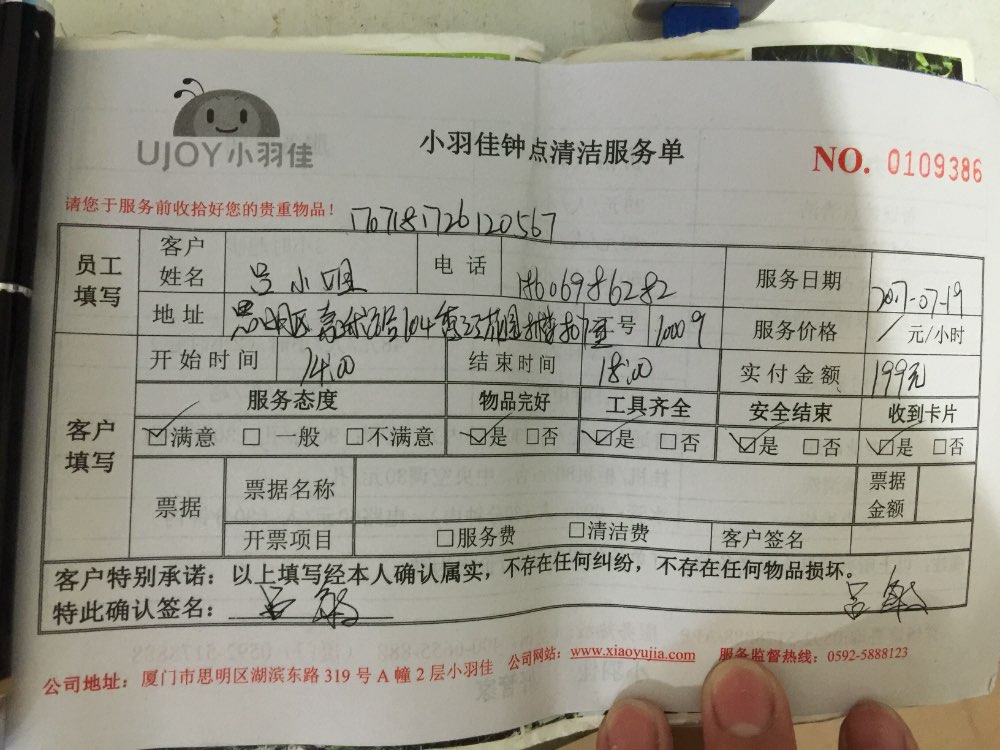 UJOY小羽佳
小羽佳钟点清洁服务单
NO. 0109386
请您于服务前收拾好您的贵重物品!
1707181726120567
员工填写 客户姓名 吕小姐 电话 18606986282 服务日期 2017-07-19
地址 思明区 104 号 10009 服务价格 / 元/小时
开始时间 14:00 结束时间 18:00 实付金额 199元
客户填写 服务态度 物品完好 工具齐全 安全结束 收到卡片
☑满意 □一般 □不满意 ☑是 □否 ☑是 □否 ☑是 □否 ☑是 □否
票据 票据名称 票据金额
开票项目 □服务费 □清洁费 客户签名
客户特别承诺:以上填写经本人确认属实,不存在任何纠纷,不存在任何物品损坏。
特此确认签名: 吕敏 吕敏
公司地址:厦门市思明区湖滨东路 319 号 A 幢 2 层小羽佳 公司网站:www.xiaoyujia.com 服务监督热线:0592-5888123